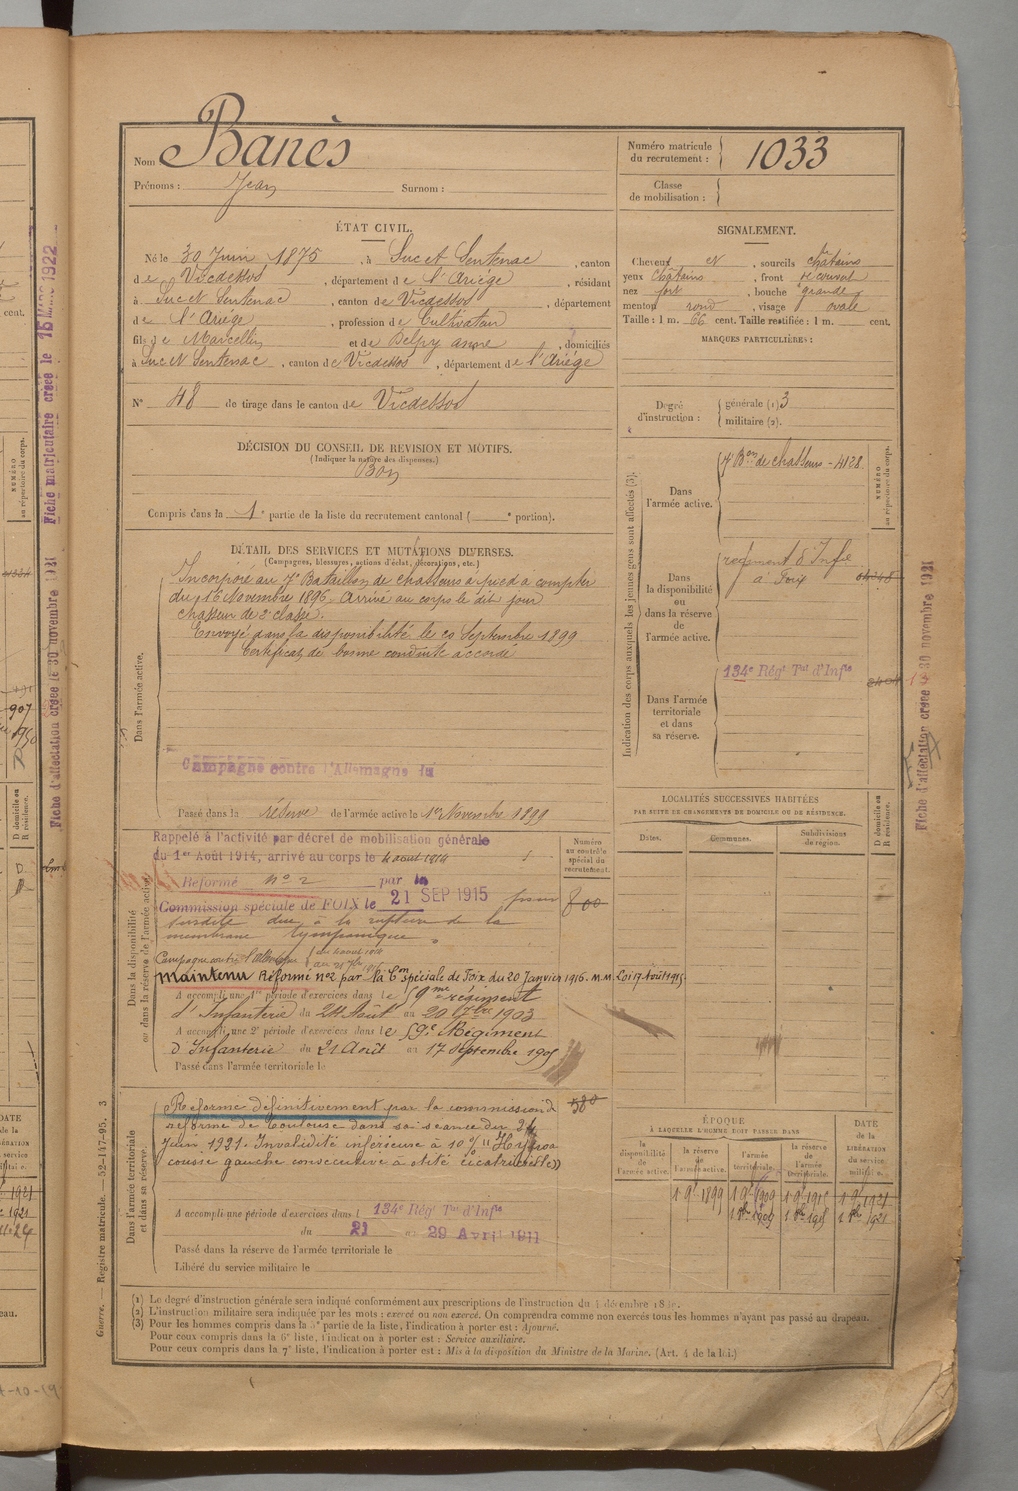 Nom Banès
Prénoms : Jean Surnom :
Numéro matricule du recrutement : 1033
Classe de mobilisation :
ÉTAT CIVIL.
Né le 30 Juin 1875, à Suc et Sentenac, canton
de Vicdessos, département de l'Ariége, résidant
à Suc et Sentenac, canton de Vicdessos, département
de l'Ariége, profession de Cultivateur
fils de Marcellin et de Delpy Anne, domiciliés
à Suc et Sentenac, canton de Vicdessos, département de l'Ariége
N° 48 de tirage dans le canton de Vicdessos
SIGNALEMENT.
Cheveux et, sourcils châtains
yeux châtains, front découvert
nez fort, bouche grande
menton rond, visage ovale
Taille : 1 m. 66 cent. Taille rectifiée : 1 m. cent.
MARQUES PARTICULIÈRES :
Degré d'instruction : générale (1) 3
militaire (2).
DÉCISION DU CONSEIL DE REVISION ET MOTIFS.
(Indiquer la nature des dispenses.)
Bon
Compris dans la 1e partie de la liste du recrutement cantonal ( e portion).
DÉTAIL DES SERVICES ET MUTATIONS DIVERSES.
(Campagnes, blessures, actions d'éclat, décorations, etc.)
Dans l'armée active.
Incorporé au 7e Bataillon de chasseurs à pied à compter
du 16 Novembre 1896. Arrivé au corps le dit jour
chasseur de 2e classe.
Envoyé dans la disponibilité le 20 Septembre 1899
Certificat de bonne conduite accordé
Campagne contre l'Allemagne du
Passé dans la réserve de l'armée active le 1er Novembre 1899
Indication des corps auxquels les jeunes gens sont affectés (3).
NUMÉRO au répertoire du corps.
Dans l'armée active.
7e Bon de chasseurs - 4128.
Dans la disponibilité ou dans la réserve de l'armée active.
regiment d'Infie
à Foix
Dans l'armée territoriale et dans sa réserve.
134e Régt Tal d'Infie
LOCALITÉS SUCCESSIVES HABITÉES
PAR SUITE DE CHANGEMENTS DE DOMICILE OU DE RÉSIDENCE.
Dates. Communes. Subdivisions de région.
D domicile ou R résidence.
Dans la disponibilité ou dans la réserve de l'armée active.
Numéro au contrôle spécial du recrutement.
Rappelé à l'activité par décret de mobilisation générale
du 1er Août 1914, arrivé au corps le 4 aout 1914
Réformé n° 2 par la
Commission spéciale de FOIX le 21 SEP 1915 pour
800
surdité due à la rupture de la
membrane tympanique
Campagne contre l'Allemagne du 4 aout 1914
maintenu Réformé n°2 par la Con spéciale de Foix du 20 Janvier 1916. M.M. Loi 17 Août 1915
A accompli une 1re période d'exercices dans le 59me régiment
d'Infanterie du 24 Août au 20 7bre 1903
A accompli une 2e période d'exercices dans le 59e Régiment
d'Infanterie du 21 Août au 17 septembre 1905
Passé dans l'armée territoriale le
Dans l'armée territoriale et dans sa réserve.
Réformé définitivement par la commission de
580
réforme de Toulouse dans sa séance du 24
Juin 1921. Invalidité inférieure à 10 % Hypoa
cousie gauche consécutive à otite cicatricielle
A accompli une période d'exercices dans l 134e Régt Tal d'Infie
du 21 au 29 Avril 1911
Passé dans la réserve de l'armée territoriale le
Libéré du service militaire le
ÉPOQUE
À LAQUELLE L'HOMME DOIT PASSER DANS
la disponibilité de l'armée active. la réserve de l'armée active. l'armée territoriale. la réserve de l'armée territoriale.
DATE de la LIBÉRATION du service militaire.
1 9e 1899 1 9e 1909 1 9e 1915 1 9e 1921
1 8bre 1909 1 8bre 1915 1 8bre 1921
(1) Le degré d'instruction générale sera indiqué conformément aux prescriptions de l'instruction du 4 décembre
(2) L'instruction militaire sera indiquée par les mots : exercé ou non exercé. On comprendra comme non exercés tous les hommes n'ayant pas passé au drapeau.
(3) Pour les hommes compris dans la 5e partie de la liste, l'indication à porter est : Ajourné.
Pour ceux compris dans la 6e liste, l'indication à porter est : Service auxiliaire.
Pour ceux compris dans la 7e liste, l'indication à porter est : Mis à la disposition du Ministre de la Marine. (Art. 4 de la loi.)
Guerre. — Registre matricule. — 52-147-95. 3
Fiche d'affectation créée le 30 novembre 1921
Fiche matriculaire créée le 15 MARS 1922
Fiche d'affectation créée le 30 novembre 1921